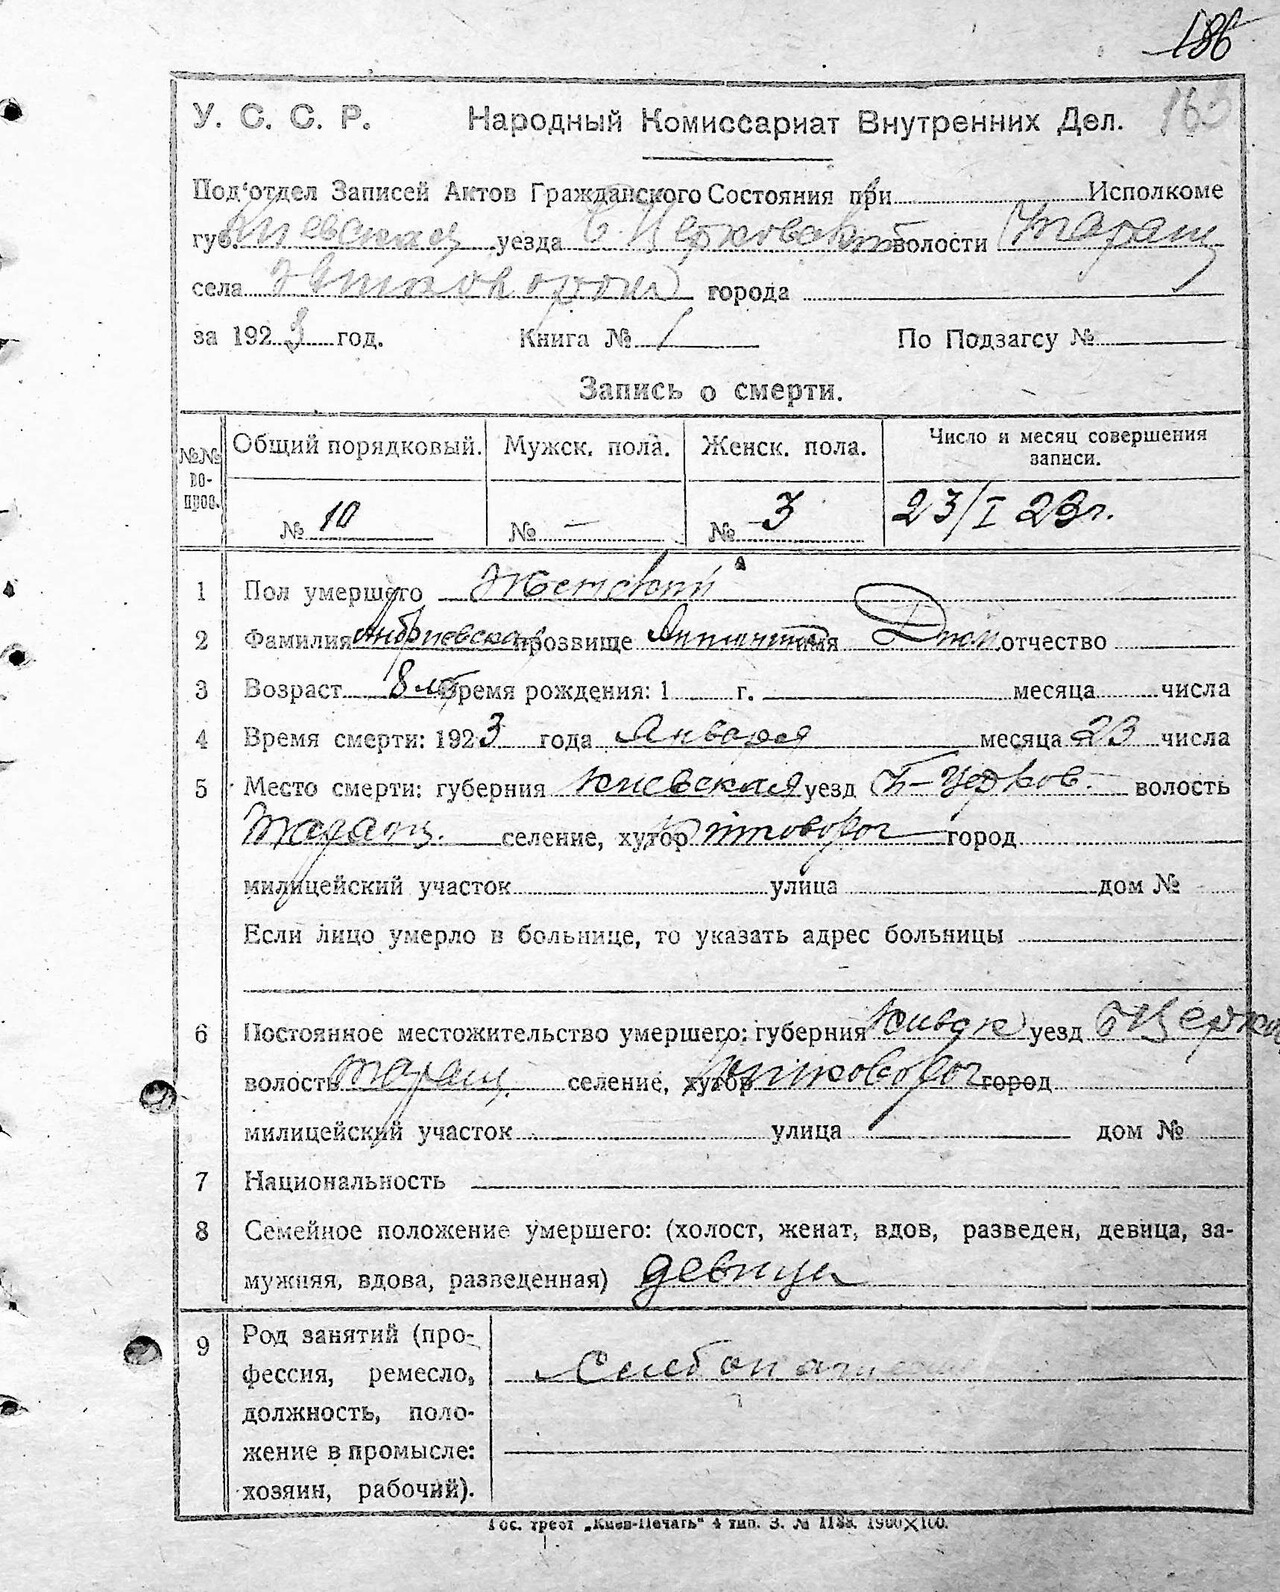 186
163
У. С. С. Р. Народный Комиссариат Внутренних Дел.
Под'отдел Записей Актов Гражданского Состояния при Исполкоме
губ. Киевская уезда Б. Церковский волости Таращ
села города
за 1923 год. Книга № 1 По Подзагсу №
Запись о смерти.
№№ вопрос. Общий порядковый. Мужск. пола. Женск. пола. Число и месяц совершения записи.
№ 10 № — № 3 23/I 23г.
1 Пол умершего Женский
2 Фамилия Андриевская прозвище имя отчество
3 Возраст 8 время рождения: 1 г. месяца числа
4 Время смерти: 1923 года Января месяца 23 числа
5 Место смерти: губерния Киевская уезд Б-Церков. волость
Таращ. селение, хутор город
милицейский участок улица дом №
Если лицо умерло в больнице, то указать адрес больницы
6 Постоянное местожительство умершего: губерния уезд Б Церков
волость Таращ. селение, хутор город
милицейский участок улица дом №
7 Национальность
8 Семейное положение умершего: (холост, женат, вдов, разведен, девица, за-
мужняя, вдова, разведенная) девица
9 Род занятий (про-
фессия, ремесло,
должность, поло-
жение в промысле:
хозяин, рабочий).
Гос. трест „Киев-Печать" 4 тип. З. №